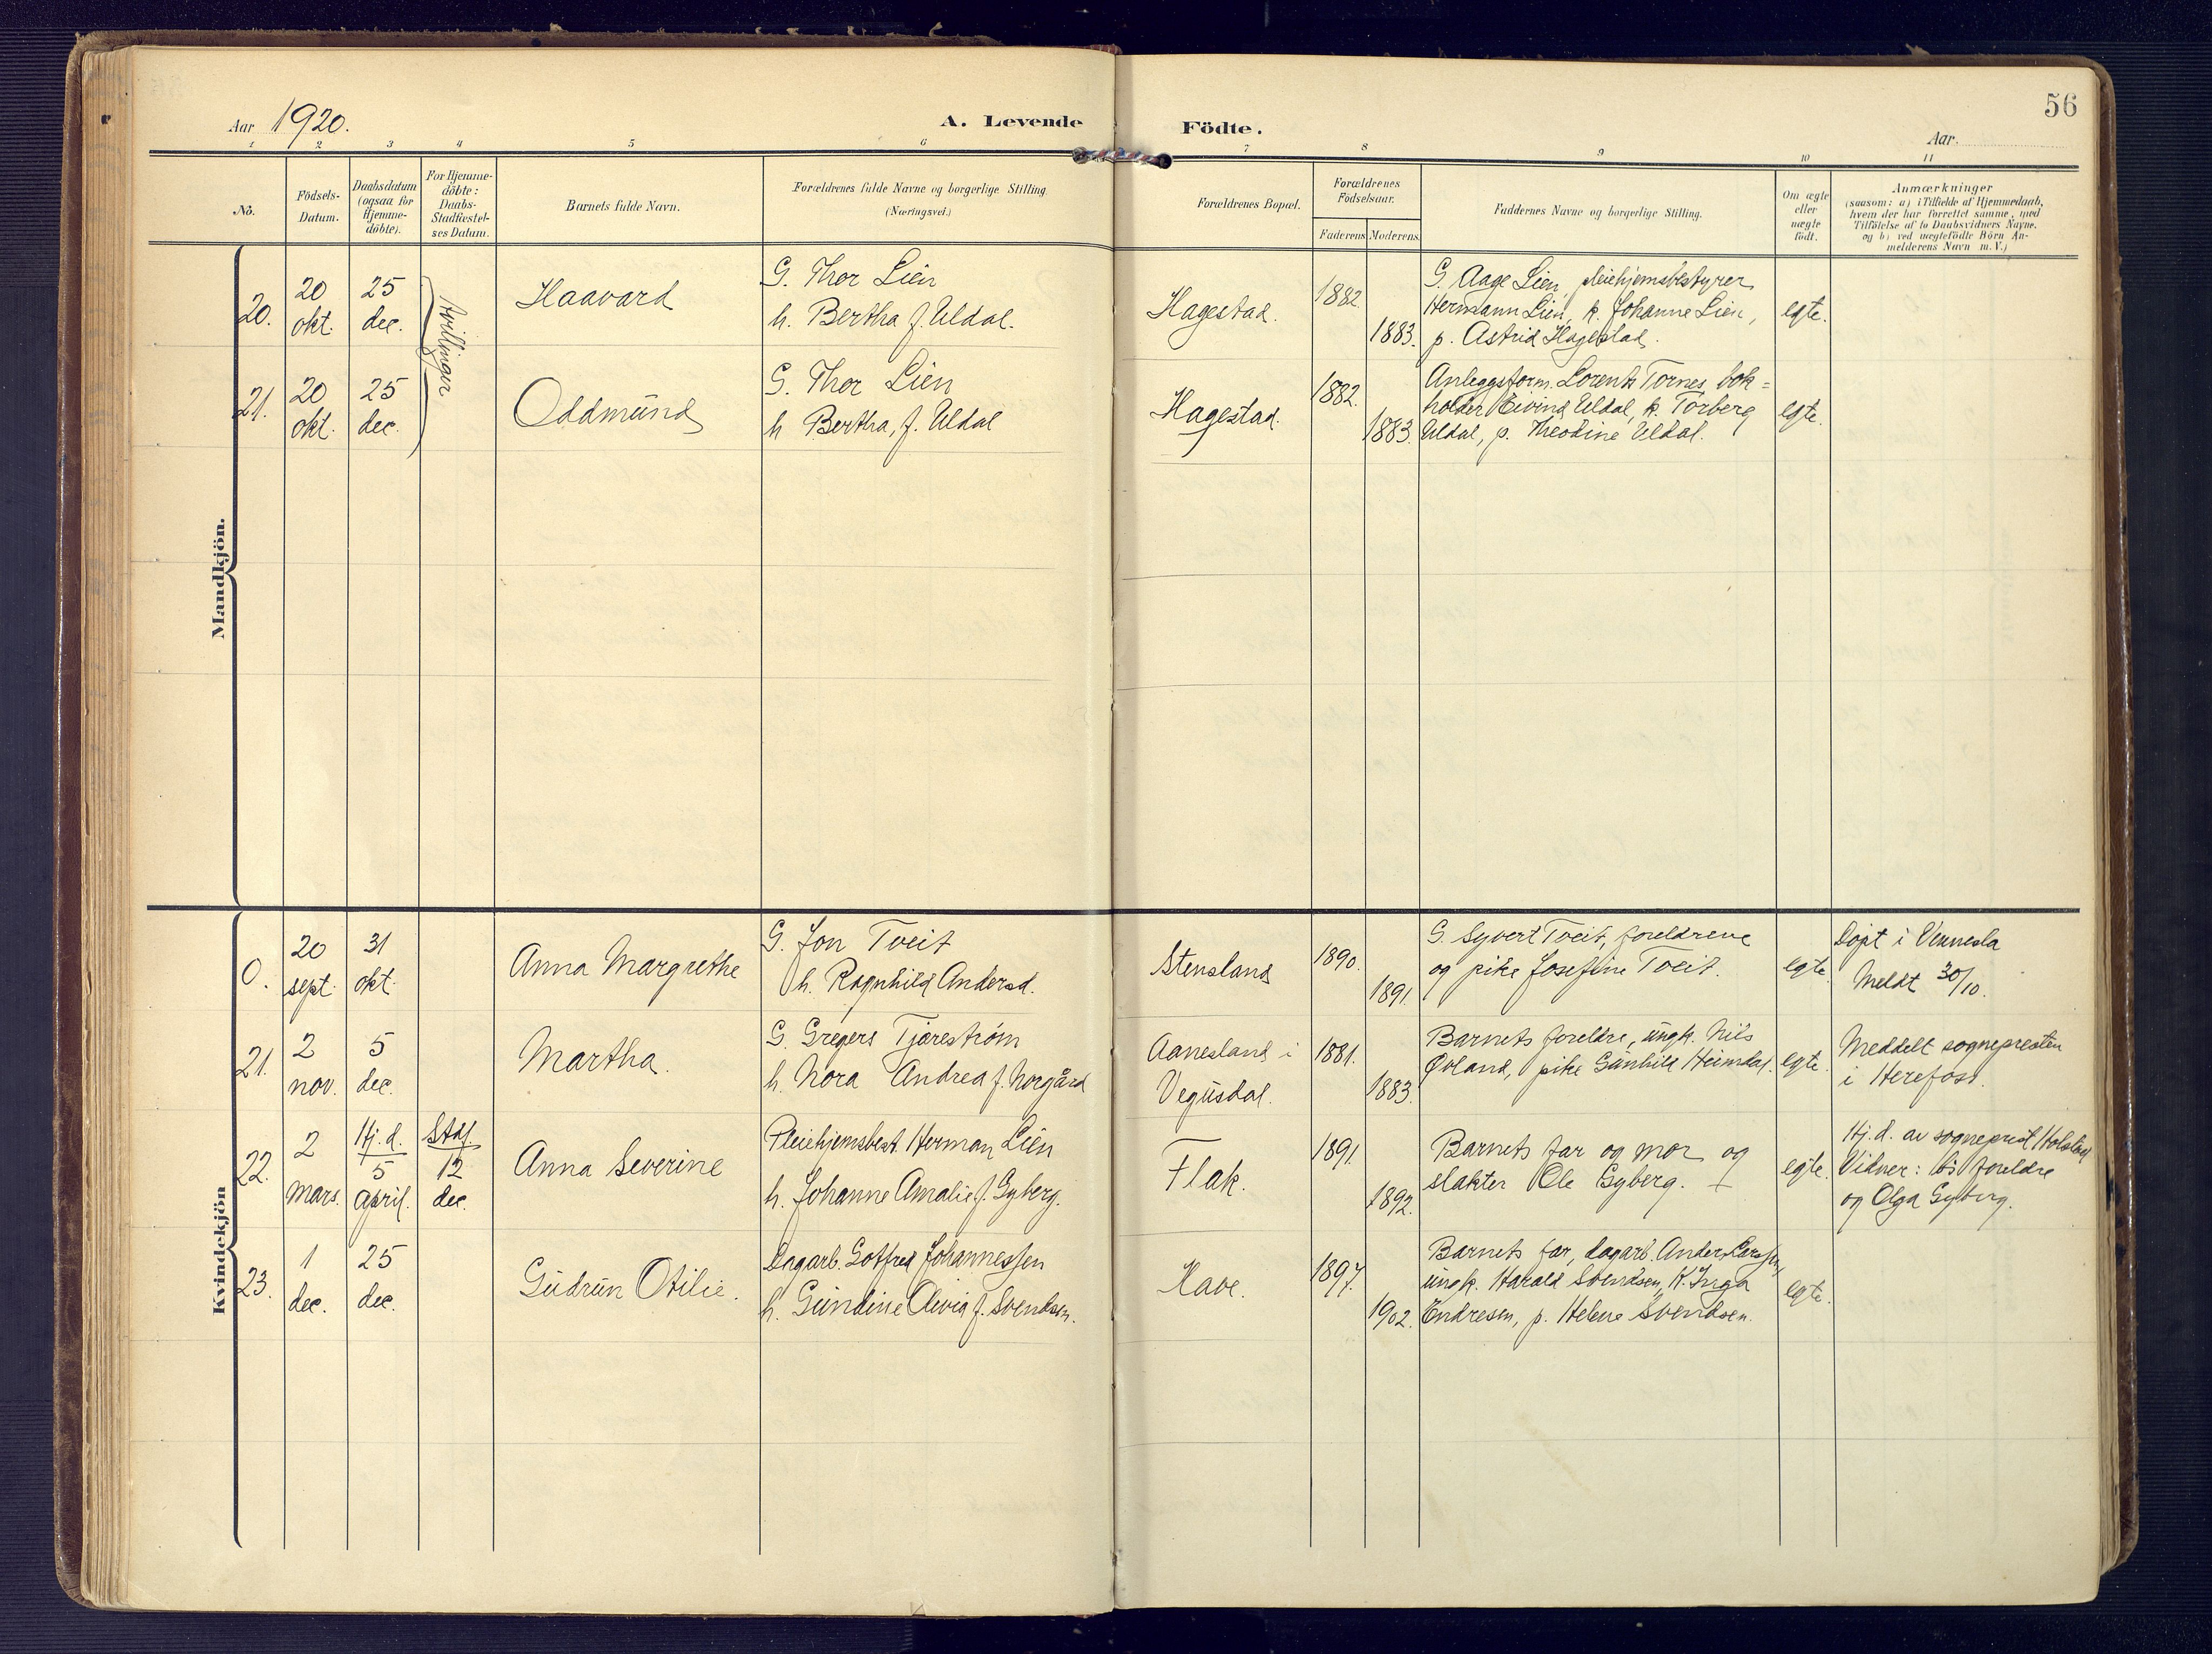 56
Aar 1920.
A. Levende Födte.
Aar
1 2 3 4 5 6 7 8 9 10 11
No.
Födsels-
Datum.
Daabsdatum
(ogsaa for
Hjemme-
döbte).
For Hjemme-
döbte:
Daabs-
Stadfæstel-
ses Datum.
Barnets fulde Navn.
Forældrenes fulde Navne og borgerlige Stilling.
(Næringsvei.)
Forældrenes Bopæl.
Forældrenes
Födselsaar.
Faderens Moderens
Faddernes Navne og borgerlige Stilling.
Om ægte
eller
uægte
födt.
Anmærkninger
(saasom: a) i Tilfælde af Hjemmedaab,
hvem der har forrettet samme, med
Tilföielse af to Daabsvidners Navne.
og b) ved uægtefödte Börn An-
melderens Navn m. V.)
Mandkjön.
20.
20
okt.
25
dec.
tvillinger
Haavard
G. Thor Lien
h. Bertha f. Uldal.
Hagestad.
1882
1883.
G. Aage Lien, pleiehjemsbestyrer
Hermann Lien, k. Johanne Lien,
p. Astrid Hagestad.
egte.
21.
20
okt.
25
dec.
Oddmund
G. Thor Lien
h Bertha, f. Uldal
Hagestad.
1882.
1883.
Anleggsform. Lorents Tornes, bok=
holder Eivind Uldal, k. Torberg
Uldal, p. Theodine Uldal.
egte.
Kvindekjön
0.
20
sept.
31
okt.
Anna Margrethe
G. Jon Tveit
h. Ragnhild Andersd.
Stensland
1890.
1891.
G. Syvert Tveit, foreldrene
og pike Josefine Tveit.
egte.
Døpt i Vennesla
Meldt 30/10.
21.
2
nov.
5
dec.
Martha.
G. Gregers Tjærestrøm
h. Nora Andrea f. Norgård
Aanesland i
Vegusdal.
1881.
1883.
Barnets foreldre, ungk. Nils
Øvland, pike Gunhild Heimdal.
egte.
Meddelt sognepresten
i Herefoss.
22.
2
mars.
Hj. d.
5
april.
Stdf.
12
dec.
Anna Severine
Pleiehjemsbest. Herman Lien
h. Johanne Amalie f. Gyberg.
Flak.
1891.
1892.
Barnets far og mor og
slakter Ole Gyberg.
egte.
Hj. d. av sogneprest
Vidner: foreldre
og Olga Gyberg.
23.
1
dec.
25
dec.
Gudrun Otilie.
Dagarb. Gotfred Johannessen
h. Gundine Olivia f. Svendsen.
Kave.
1897.
1902.
Barnets far, dagarb. Anders Larssen,
ungk. Harald Svendsen, K. Inga
Endresen, p. Helene Svendsen.
egte.